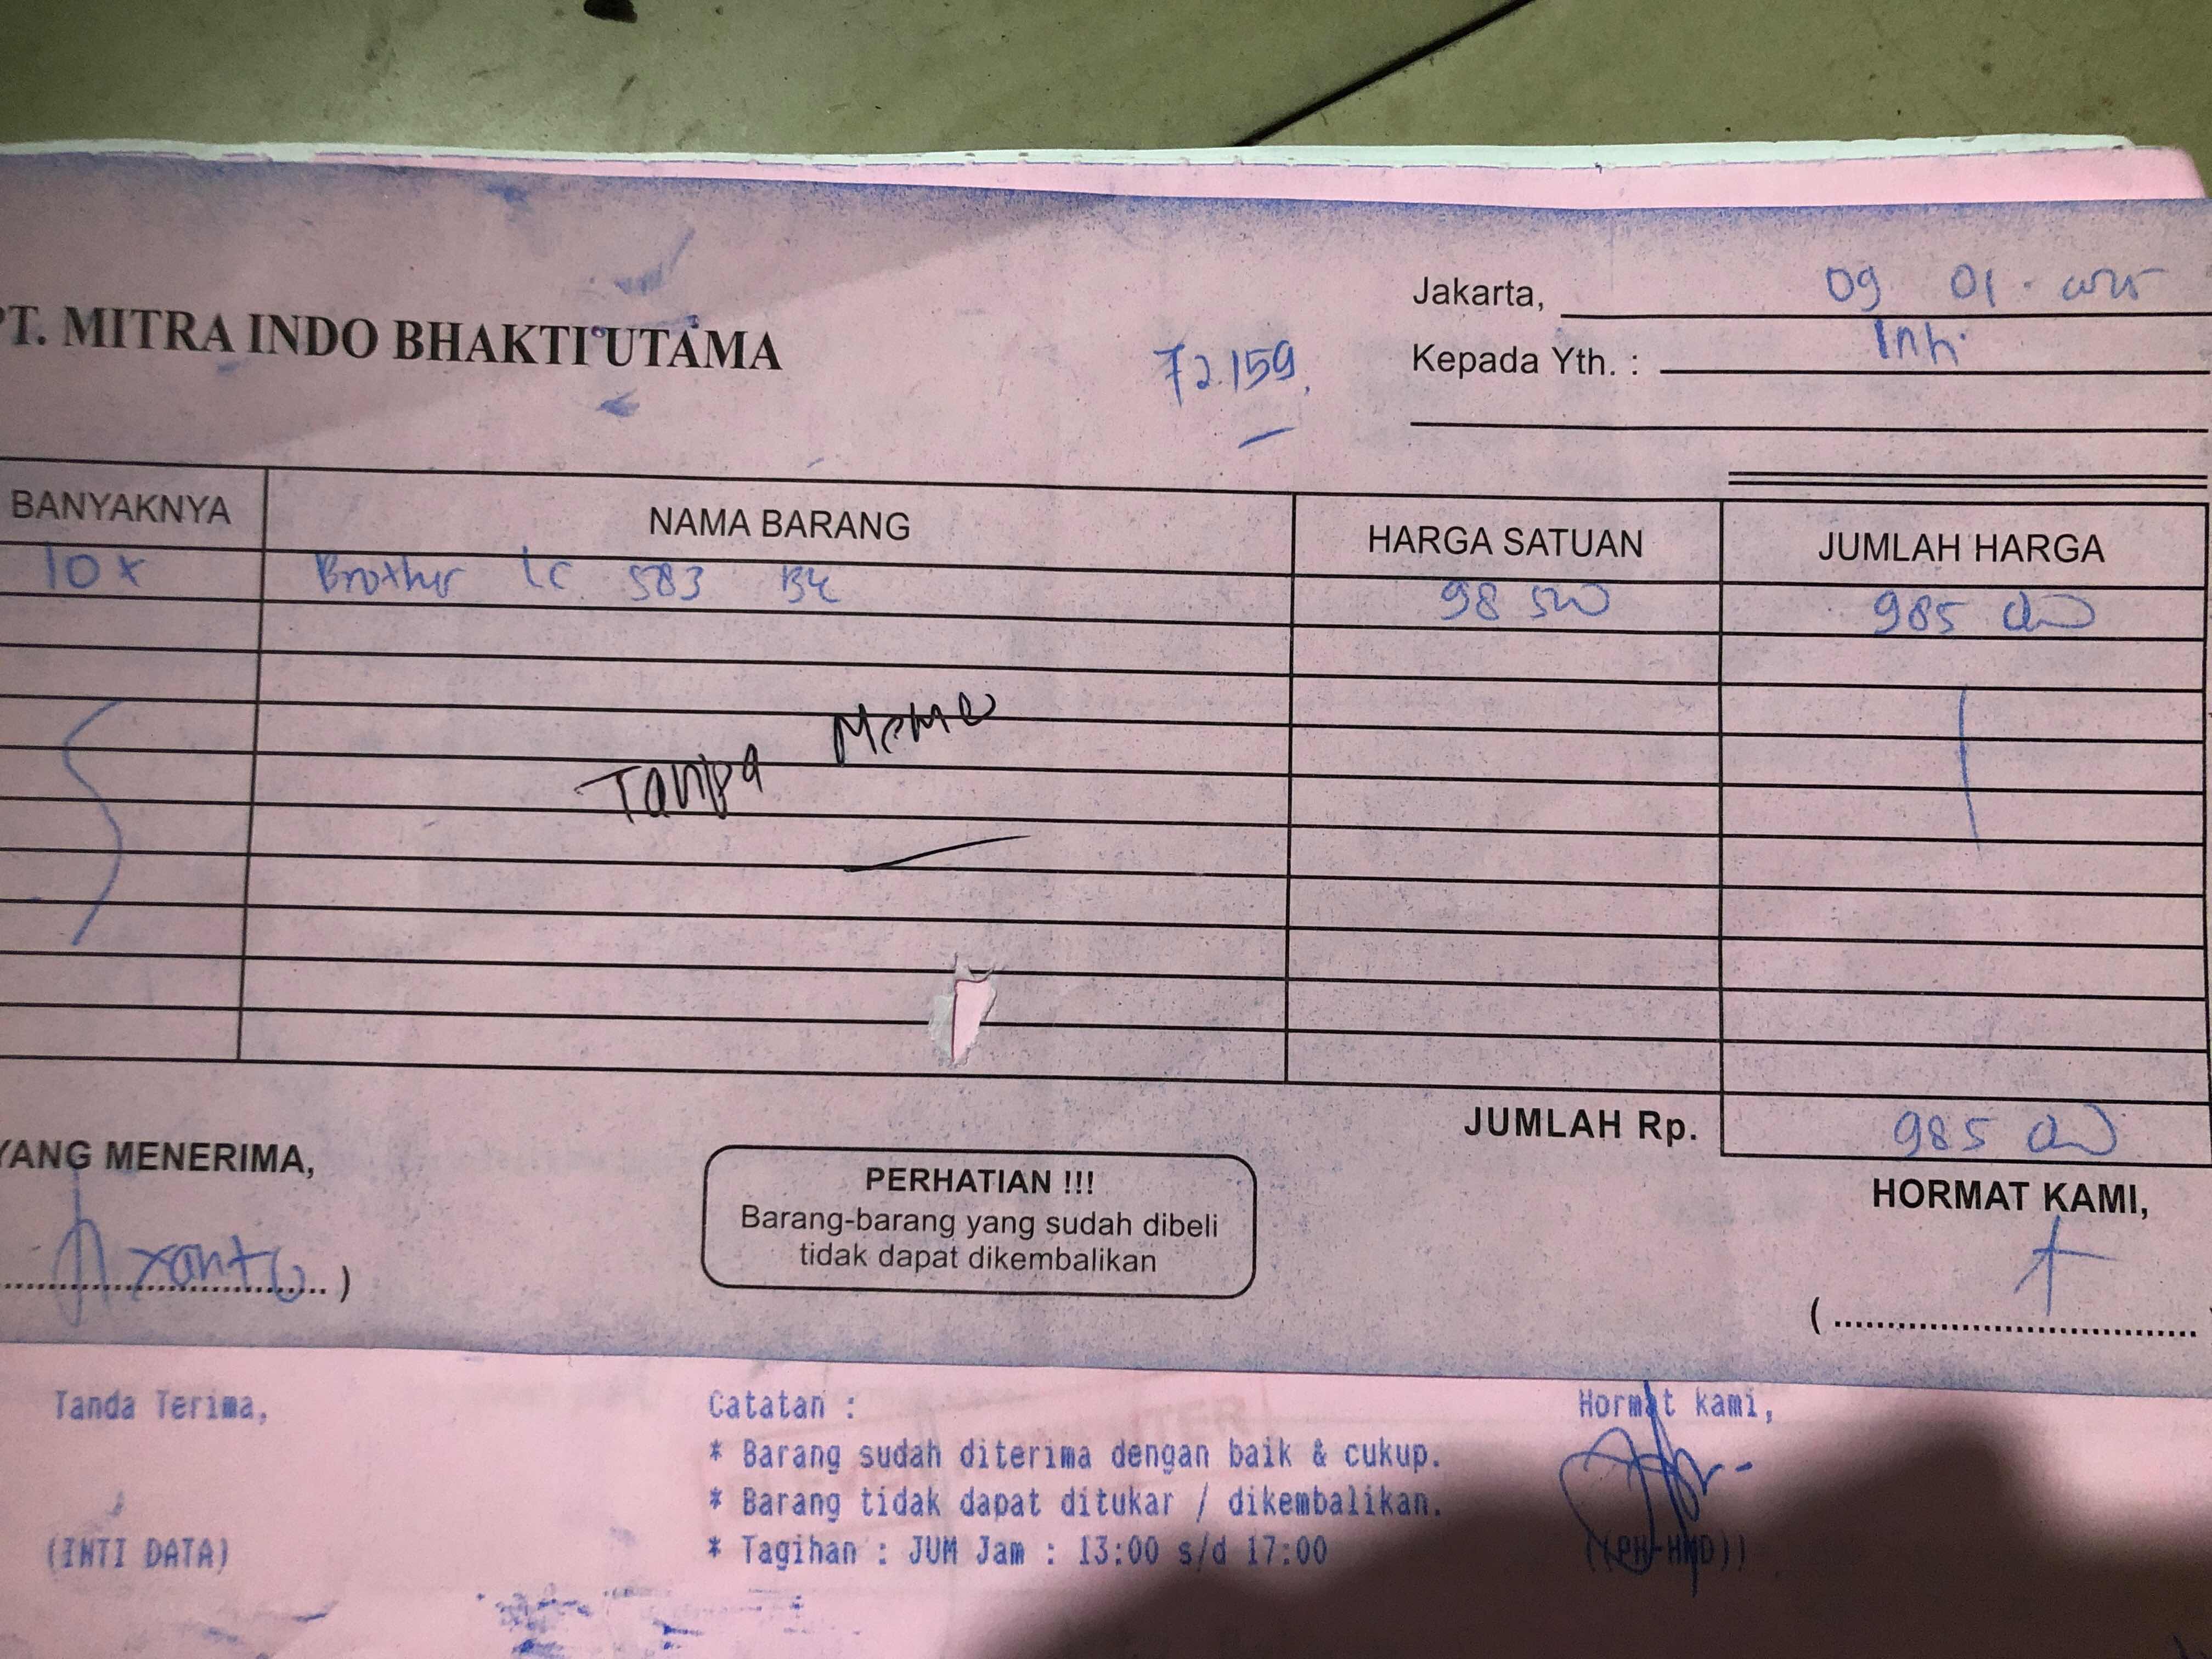 PT. MITRA INDO BHAKTI UTAMA
72.159
Jakarta, 09 01 - 2025
Kepada Yth. : Inti
BANYAKNYA NAMA BARANG HARGA SATUAN JUMLAH HARGA
10 x Brother LC 583 BK 98 500 985 000
Tanpa Memo
JUMLAH Rp. 985 000
YANG MENERIMA,
PERHATIAN !!!
Barang-barang yang sudah dibeli
tidak dapat dikembalikan
HORMAT KAMI,
Tanda Terima,
Catatan :
Hormat kami,
* Barang sudah diterima dengan baik & cukup.
* Barang tidak dapat ditukar / dikembalikan.
* Tagihan : JUM Jam : 13:00 s/d 17:00
(INTI DATA)